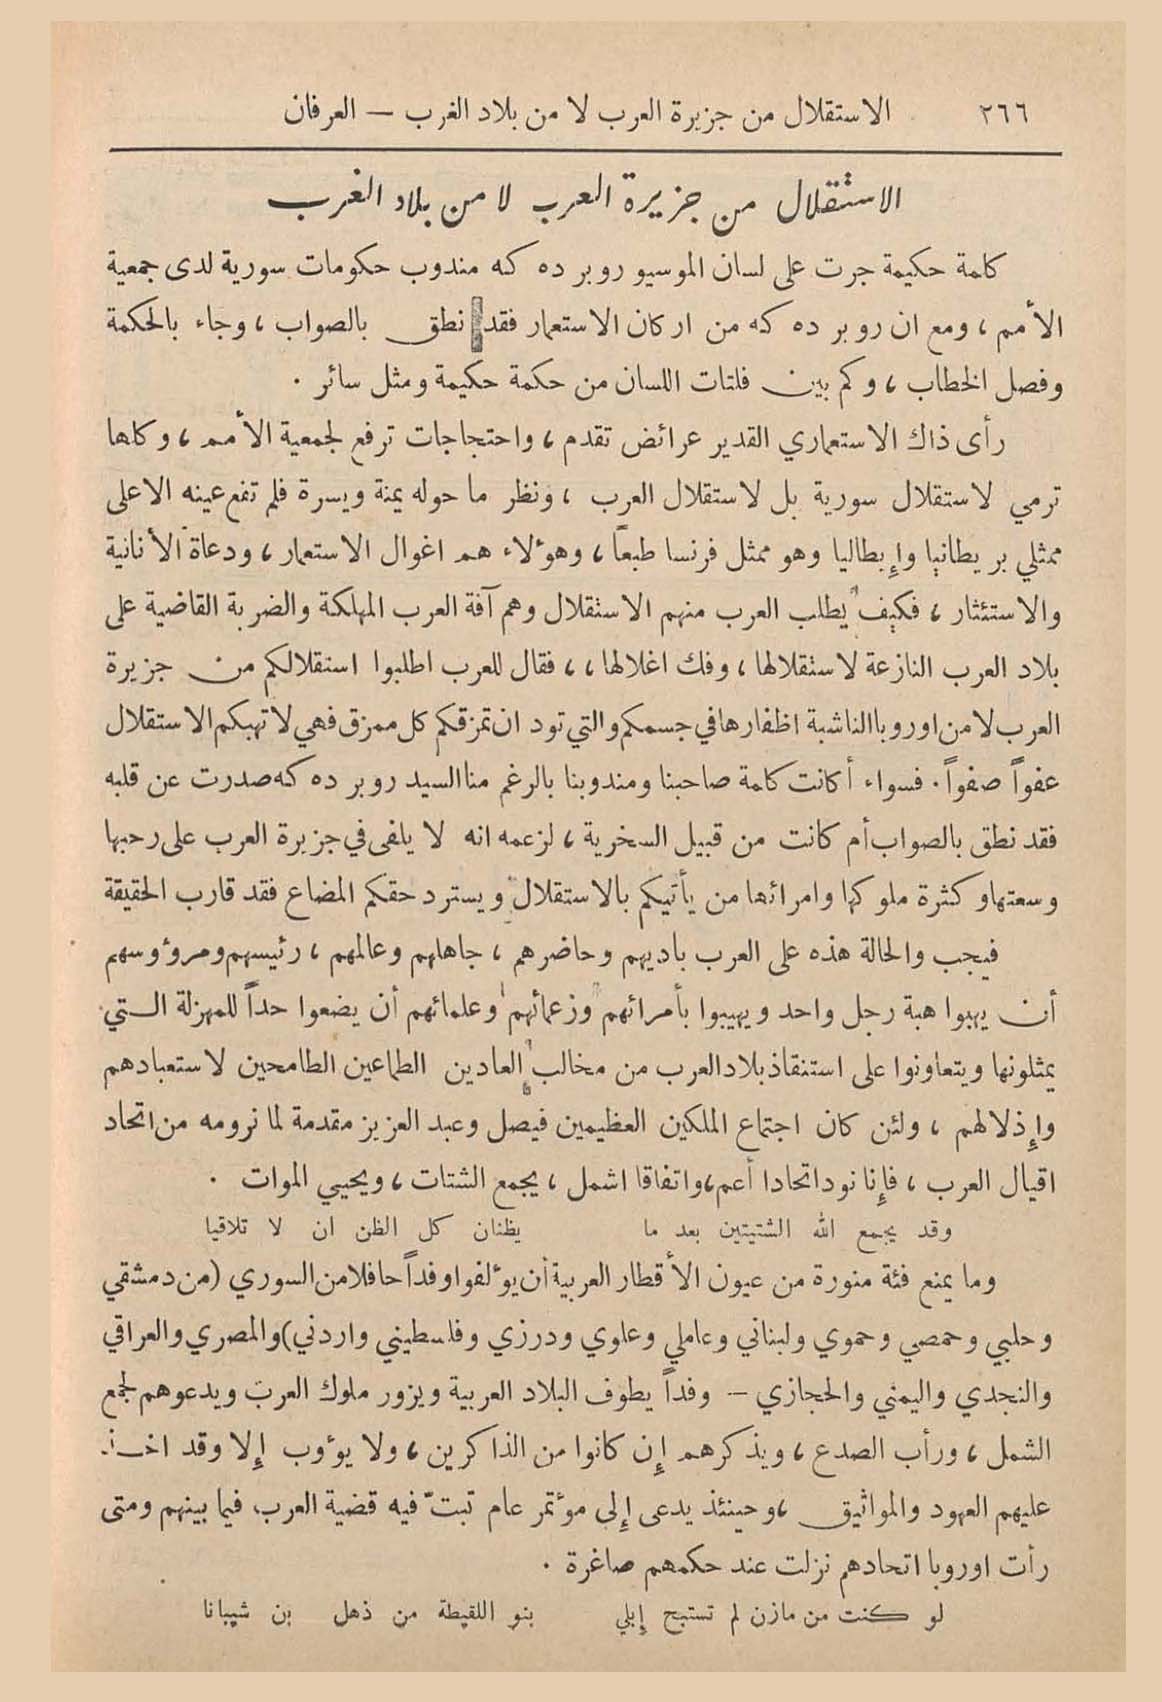 ٢٦٦ الاستقلال من جزيرة العرب لا من بلاد الغرب — العرفان
الاستقلال من جزيرة العرب لا من بلاد الغرب
كلمة حكيمة جرت على لسان الموسيو روبر ده كه مندوب حكومات سورية لدى جمعية
الأمم ، ومع ان روبر ده كه من اركان الاستعمار فقد نطق بالصواب ، وجاء بالحكمة
وفصل الخطاب ، وكم بين فلتات اللسان من حكمة حكيمة ومثل سائر .
رأى ذاك الاستعماري القدير عرائض تقدم ، واحتجاجات ترفع لجمعية الأمم ، وكلها
ترمي لاستقلال سورية بل لاستقلال العرب ، ونظر ما حوله يمنة ويسرة فلم تقع عينه الا على
ممثلي بريطانيا وإيطاليا وهو ممثل فرنسا طبعاً ، وهؤلاء هم اغوال الاستعمار ، ودعاة الأنانية
والاستئثار ، فكيف يطلب العرب منهم الاستقلال وهم آفة العرب المهلكة والضربة القاضية على
بلاد العرب النازعة لاستقلالها ، وفك اغلالها ، ، فقال للعرب اطلبوا استقلالكم من جزيرة
العرب لا من اوروبا الناشبة اظفارها في جسمكم والتي تود ان تمزقكم كل ممزق فهي لا تهبكم الاستقلال
عفواً صفواً . فسواء أكانت كلمة صاحبنا ومندوبنا بالرغم منا السيد روبر ده كه صدرت عن قلبه
فقد نطق بالصواب أم كانت من قبيل السخرية ، لزعمه انه لا يلفى في جزيرة العرب على رحبها
وسعتها وكثرة ملوكها وامرائها من يأتيكم بالاستقلال ويسترد حقكم المضاع فقد قارب الحقيقة
فيجب والحالة هذه على العرب باديهم وحاضرهم ، جاهلهم وعالمهم ، رئيسهم ومرؤوسهم
أن يهبوا هبة رجل واحد ويهيبوا بأمرائهم وزعمائهم وعلمائهم أن يضعوا حداً للمهزلة التي
يمثلونها ويتعاونوا على استنقاذ بلاد العرب من مخالب العادين الطماعين الطامحين لاستعبادهم
وإذلالهم ، ولئن كان اجتماع الملكين العظيمين فيصل وعبد العزيز مقدمة لما نرومه من اتحاد
اقيال العرب ، فإنا نود اتحادا أعم ، واتفاقا اشمل ، يجمع الشتات ، ويحيي الموات .
وقد يجمع الله الشتيتين بعد ما يظنان كل الظن ان لا تلاقيا
وما يمنع فئة منورة من عيون الأقطار العربية أن يؤلفوا وفداً حافلا من السوري (من دمشقي
وحلبي وحمصي وحموي ولبناني وعاملي وعلوي ودرزي وفلسطيني واردني) والمصري والعراقي
والنجدي واليمني والحجازي — وفداً يطوف البلاد العربية ويزور ملوك العرب ويدعوهم لجمع
الشمل ، ورأب الصدع ، ويذكرهم إن كانوا من الذاكرين ، ولا يؤوب إلا وقد اخذ
عليهم العهود والمواثيق ، وحينئذ يدعى إلى مؤتمر عام تبتّ فيه قضية العرب فيما بينهم ومتى
رأت اوروبا اتحادهم نزلت عند حكمهم صاغرة .
لو كنت من مازن لم تستبح إبلي بنو اللقيطة من ذهل بن شيبانا